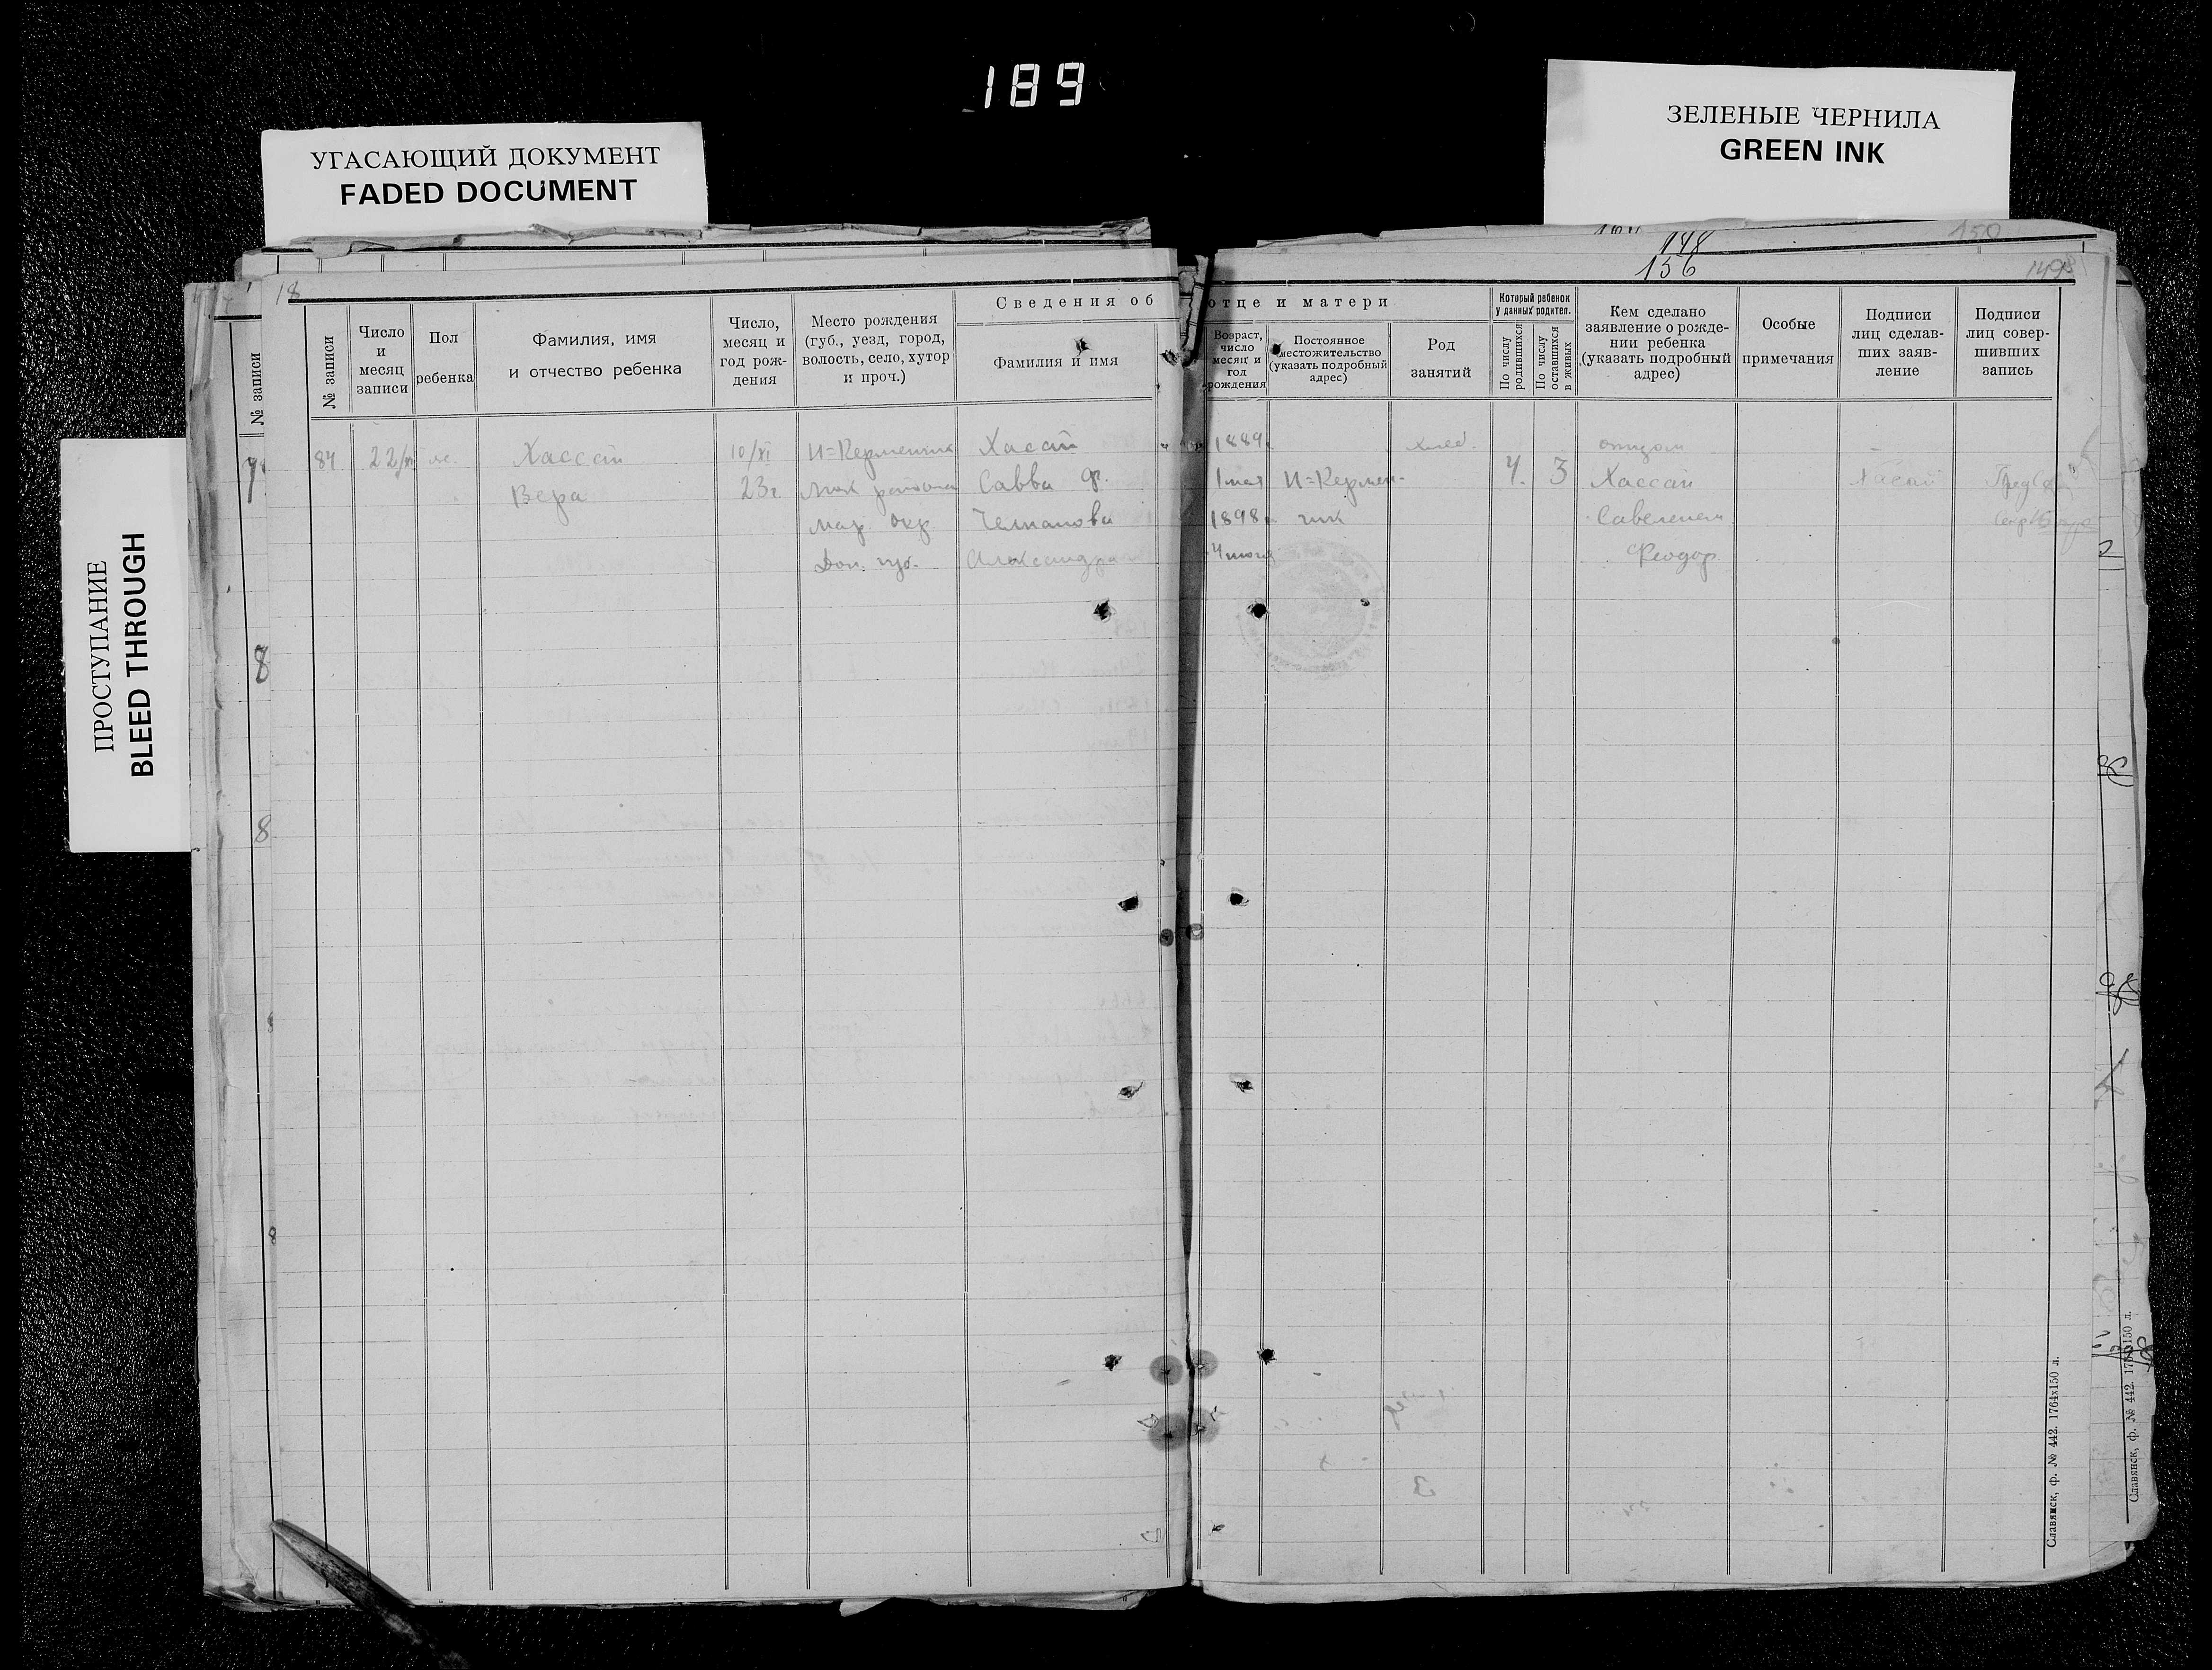 189
УГАСАЮЩИЙ ДОКУМЕНТ
FADED DOCUMENT
ЗЕЛЕНЫЕ ЧЕРНИЛА
GREEN INK
ПРОСТУПАНИЕ
BLEED THROUGH
148
150
156
149
18
Сведения об отце и матери
№ записи
№ записи
Число и месяц записи
Пол ребенка
Фамилия, имя и отчество ребенка
Число, месяц и год рождения
Место рождения (губ., уезд, город, волость, село, хутор и проч.)
Фамилия и имя
Возраст, число месяц и год рождения
Постоянное местожительство (указать подробный адрес)
Род занятий
Который ребенок у данных родител.
По числу родившихся
По числу оставшихся в живых
Кем сделано заявление о рождении ребенка (указать подробный адрес)
Особые примечания
Подписи лиц сделавших заявление
Подписи лиц совершивших запись
84 22/XI ж. Хассай 10/XI И=Керменчик Хасай 1889 хлеб. отцом
Вера 23г. района Савва Ф. 1 мая И=Кермен- 4. 3 Хассай Хасай
Мар. окр. Челпанова 1898 чик Савелием
Дон. губ. Александра 4 июня Феодор.
8
8
Славянск, ф. № 442. 1764х150 л.
Славянск, ф. № 442. 1764х150 л.